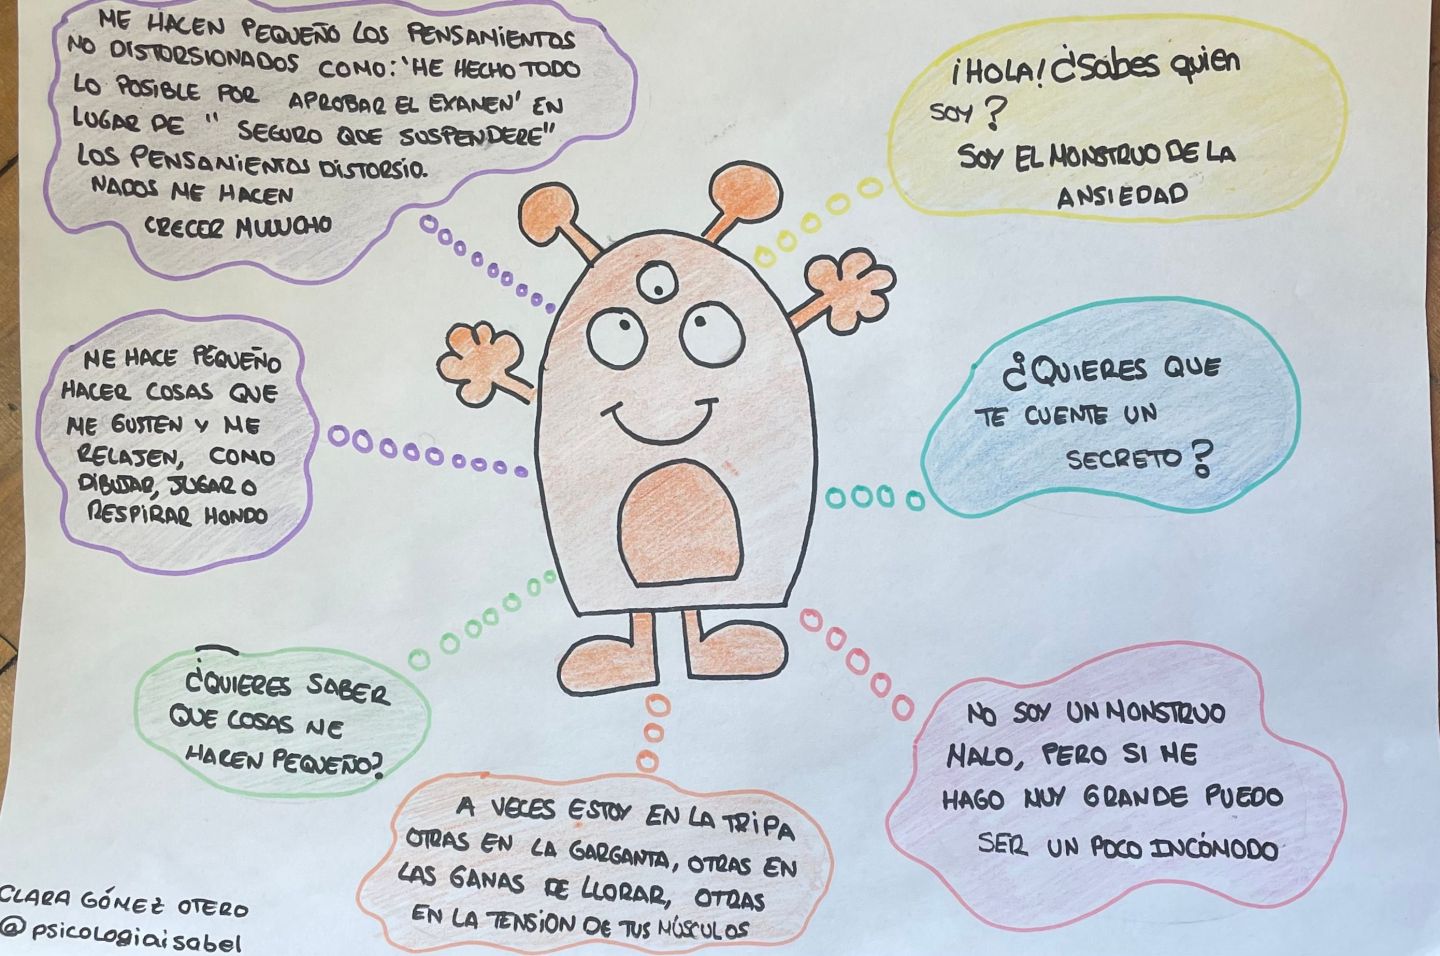 ¡HOLA! ¿Sabes quien
SOY?
SOY EL MONSTRUO DE LA
ANSIEDAD
¿QUIERES QUE
TE CUENTE UN
SECRETO?
NO SOY UN MONSTRUO
MALO, PERO SI ME
HAGO MUY GRANDE PUEDO
SER UN POCO INCÓMODO
A VECES ESTOY EN LA TRIPA
OTRAS EN LA GARGANTA, OTRAS EN
LAS GANAS DE LLORAR, OTRAS
EN LA TENSION DE TUS MÚSCULOS
¿QUIERES SABER
QUE COSAS ME
HACEN PEQUEÑO?
ME HACE PEQUEÑO
HACER COSAS QUE
ME GUSTEN Y ME
RELAJEN, COMO
DIBUJAR, JUGAR O
RESPIRAR HONDO
ME HACEN PEQUEÑO LOS PENSAMIENTOS
NO DISTORSIONADOS COMO: 'HE HECHO TODO
LO POSIBLE POR APROBAR EL EXAMEN' EN
LUGAR DE " SEGURO QUE SUSPENDERE"
LOS PENSAMIENTOS DISTORSIO.
NADOS ME HACEN
CRECER MUUUCHO
CLARA GÓMEZ OTERO
@psicologiaisabel